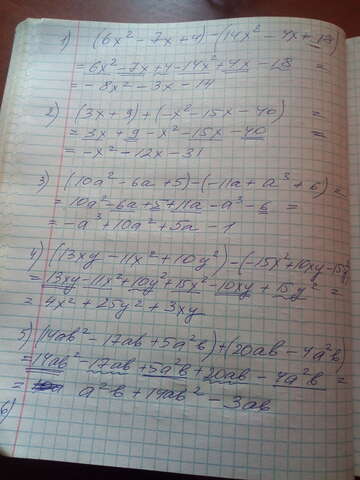 1) (6x² - 7x + 4) - (14x² - 4x + 18)
= 6x² - 7x + 4 - 14x² + 4x - 18 =
= -8x² - 3x - 14
2) (3x + 9) + (-x² - 15x - 40) =
= 3x + 9 - x² - 15x - 40 =
= -x² - 12x - 31
3) (10a² - 6a + 5) - (-11a + a³ + 6) =
= 10a² - 6a + 5 + 11a - a³ - 6 =
= -a³ + 10a² + 5a - 1
4) (13xy - 11x² + 10y²) - (-15x² + 10xy - 15y²)
= 13xy - 11x² + 10y² + 15x² - 10xy + 15y² =
= 4x² + 25y² + 3xy
5) (14ab² - 17ab + 5a²b) + (20ab - 4a²b)
= 14ab² - 17ab + 5a²b + 20ab - 4a²b =
= a²b + 14ab² - 3ab
6)